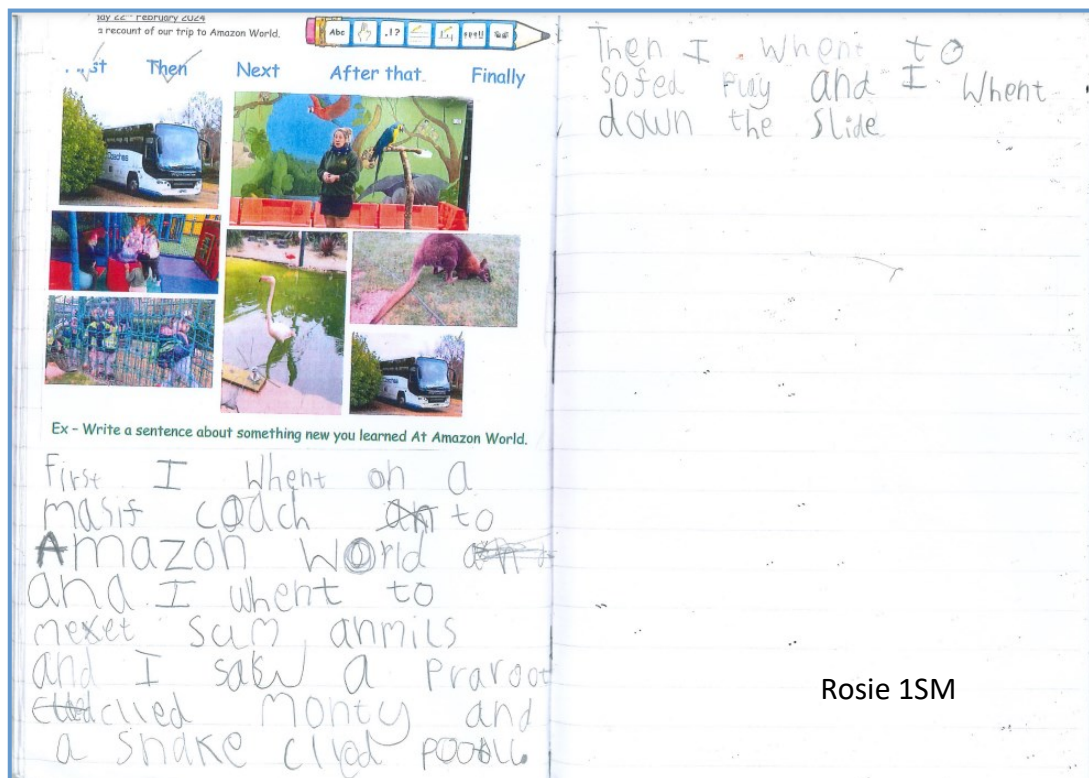 ay 22nd February 2024
a recount of our trip to Amazon World.
Abc .!?
st Then Next After that Finally
Coaches
Ex – Write a sentence about something new you learned At Amazon World.
first I Whent on a
masif coach to
Amazon World
and I whent to
sum anmils
and I saw a praroot
clled Monty and
a snake clled
Then I Whent to
sofed Play and I Whent
down the slide
Rosie 1SM